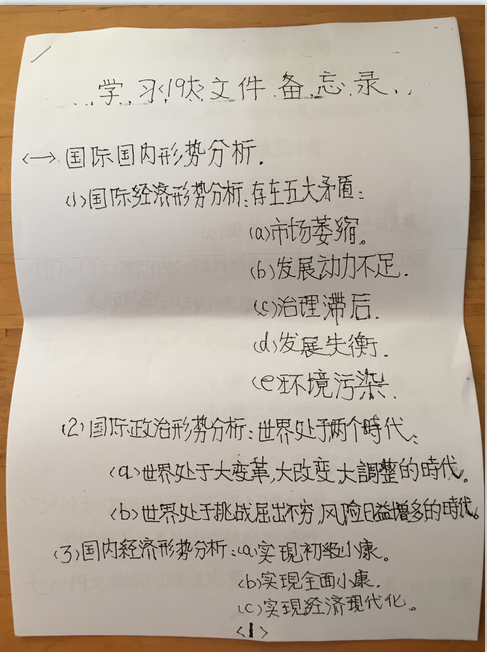 学习《19大》文件备忘录
<一>国际国内形势分析.
(1)国际经济形势分析:存在五大矛盾:
(a)市场萎缩。
(b)发展动力不足.
(c)治理滞后.
(d)发展失衡.
(e环境污染.
(2)国际政治形势分析:世界处于两个時代:
(a)世界处于大变革,大改变,大調整的時代。
(b)世界处于挑战屈出不穷,风险日益增多的時代。
(3)国内经济形势分析:(a)实现初级小康。
(b)实现全面小康.
(c)实现经济现代化。
<1>